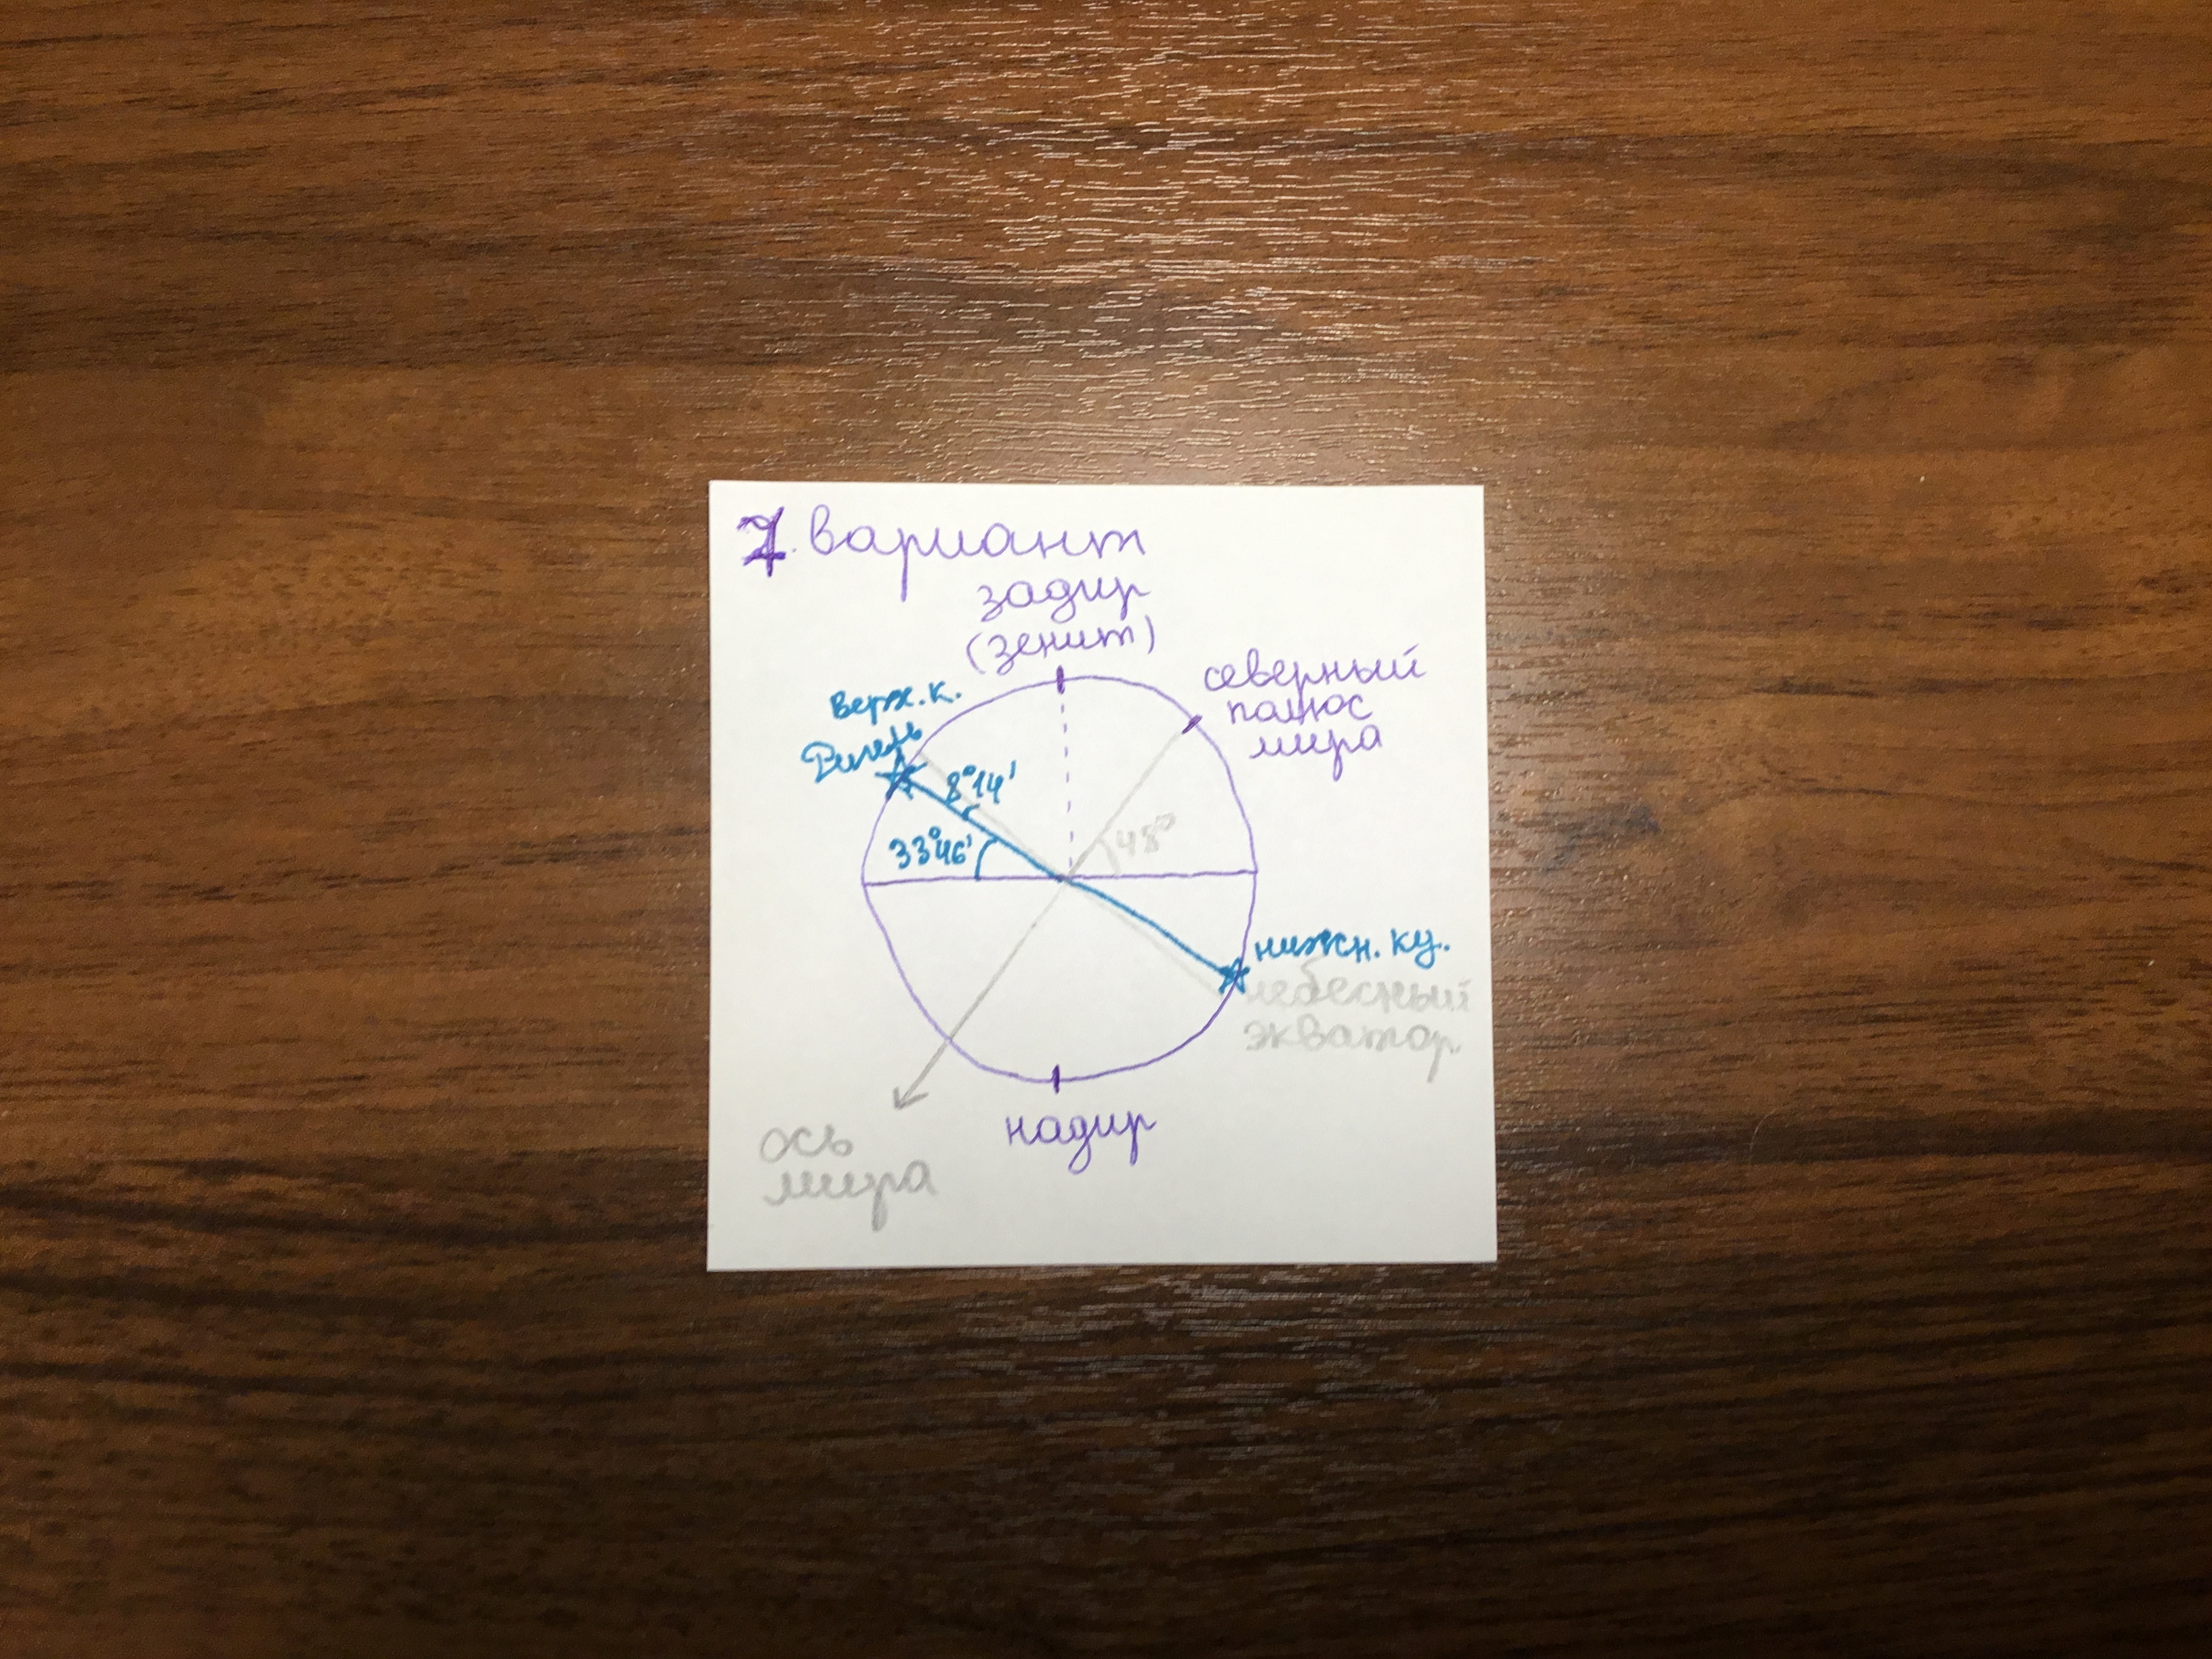 7. вариант
задир
(зенит)
северный
полюс
мира
верх. к.
Ригель
8°14'
33°46'
48°
нижн. ку.
небесный
экватор
ось
мира
надир